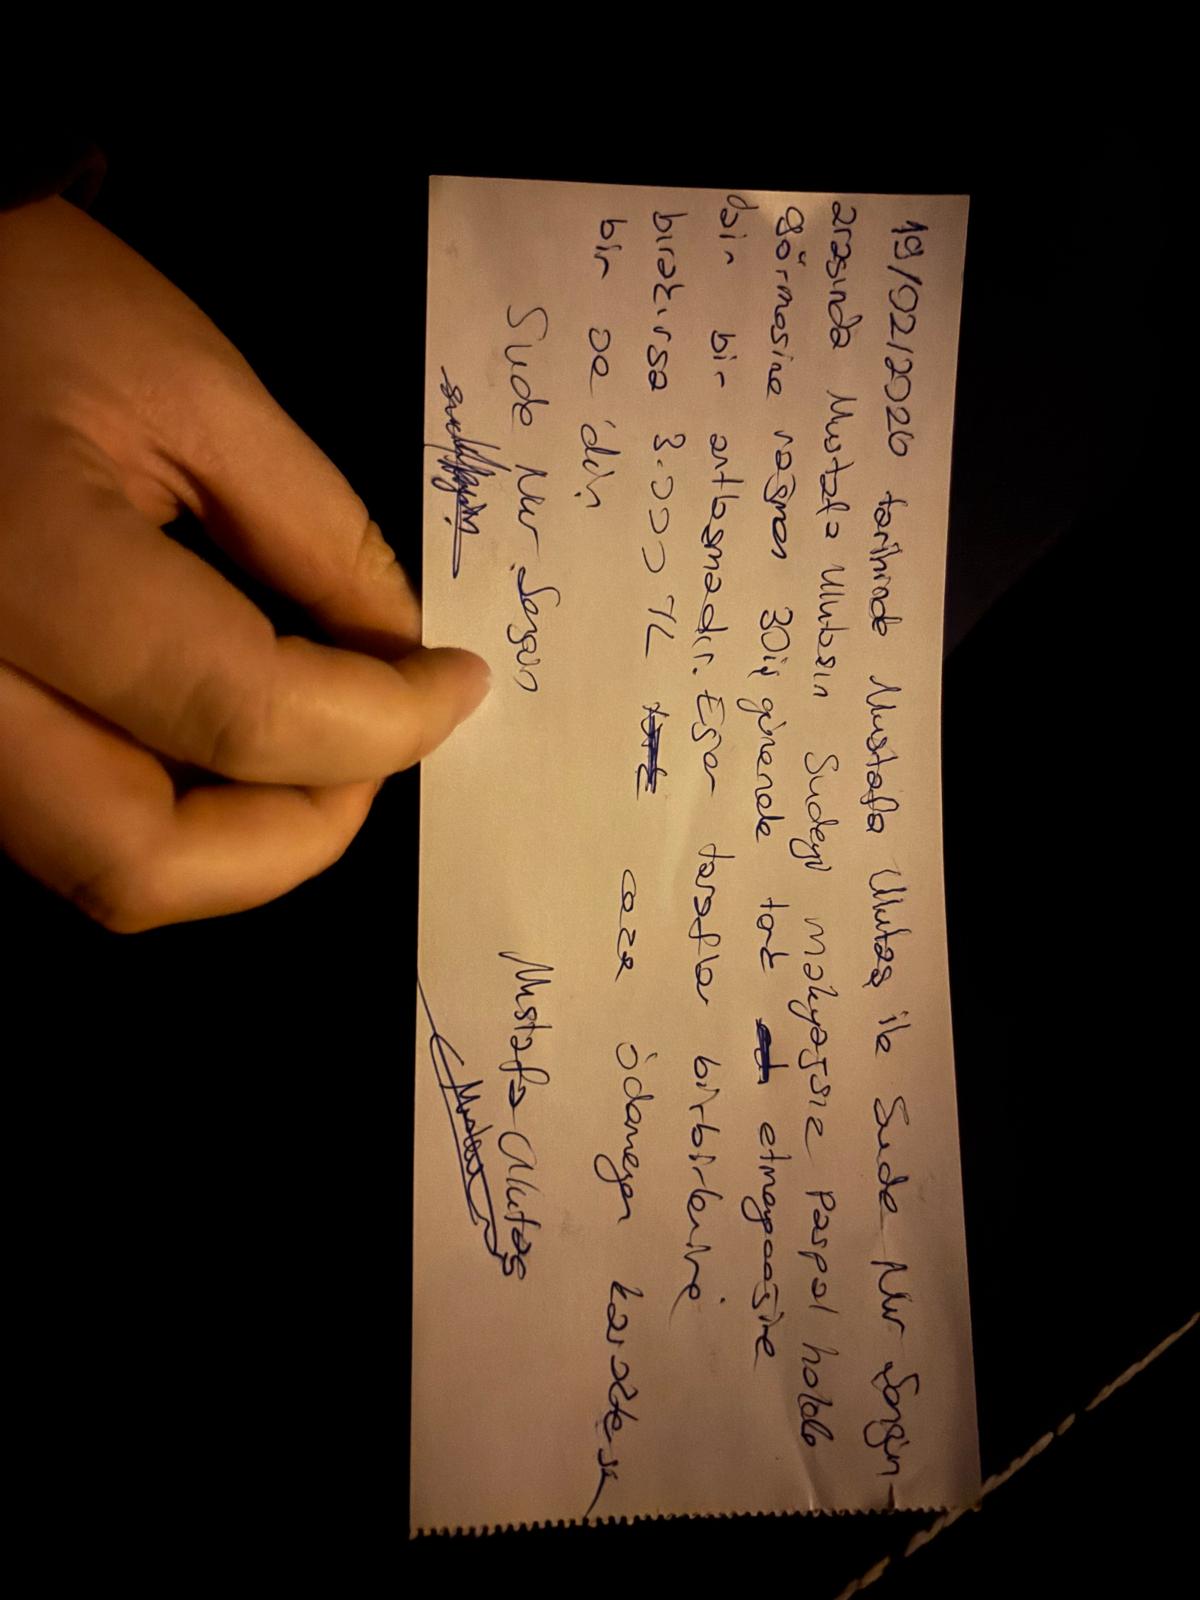 19/02/2026 tarihinde Mustafa Ulutaş ile Sude Nur Şengün
arasında Mustafa Ulutaşın Sudeyi makyajsız paspal halde
görmesine rağmen 30 iş gününde terk etmeyeceğine
dair bir antlaşmadır. Eğer taraflar birbirlerini
bırakırsa 3.000 TL ceza ödemeyen karaktersiz
bir
Sude Nur Şengün
Mustafa Ulutaş